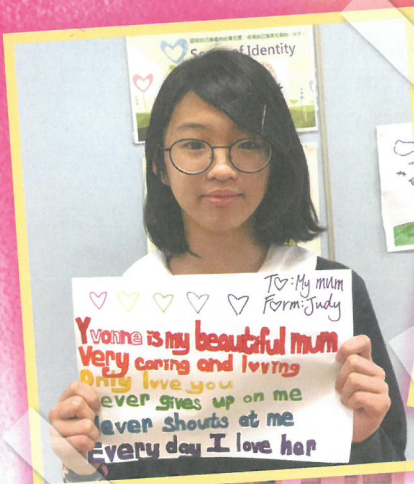 of Identity
T♡: My mum
F♡rm: Judy
Yvonne is my beautiful mum
Very caring and loving
Only love you
Never gives up on me
Never shouts at me
Every day I love her